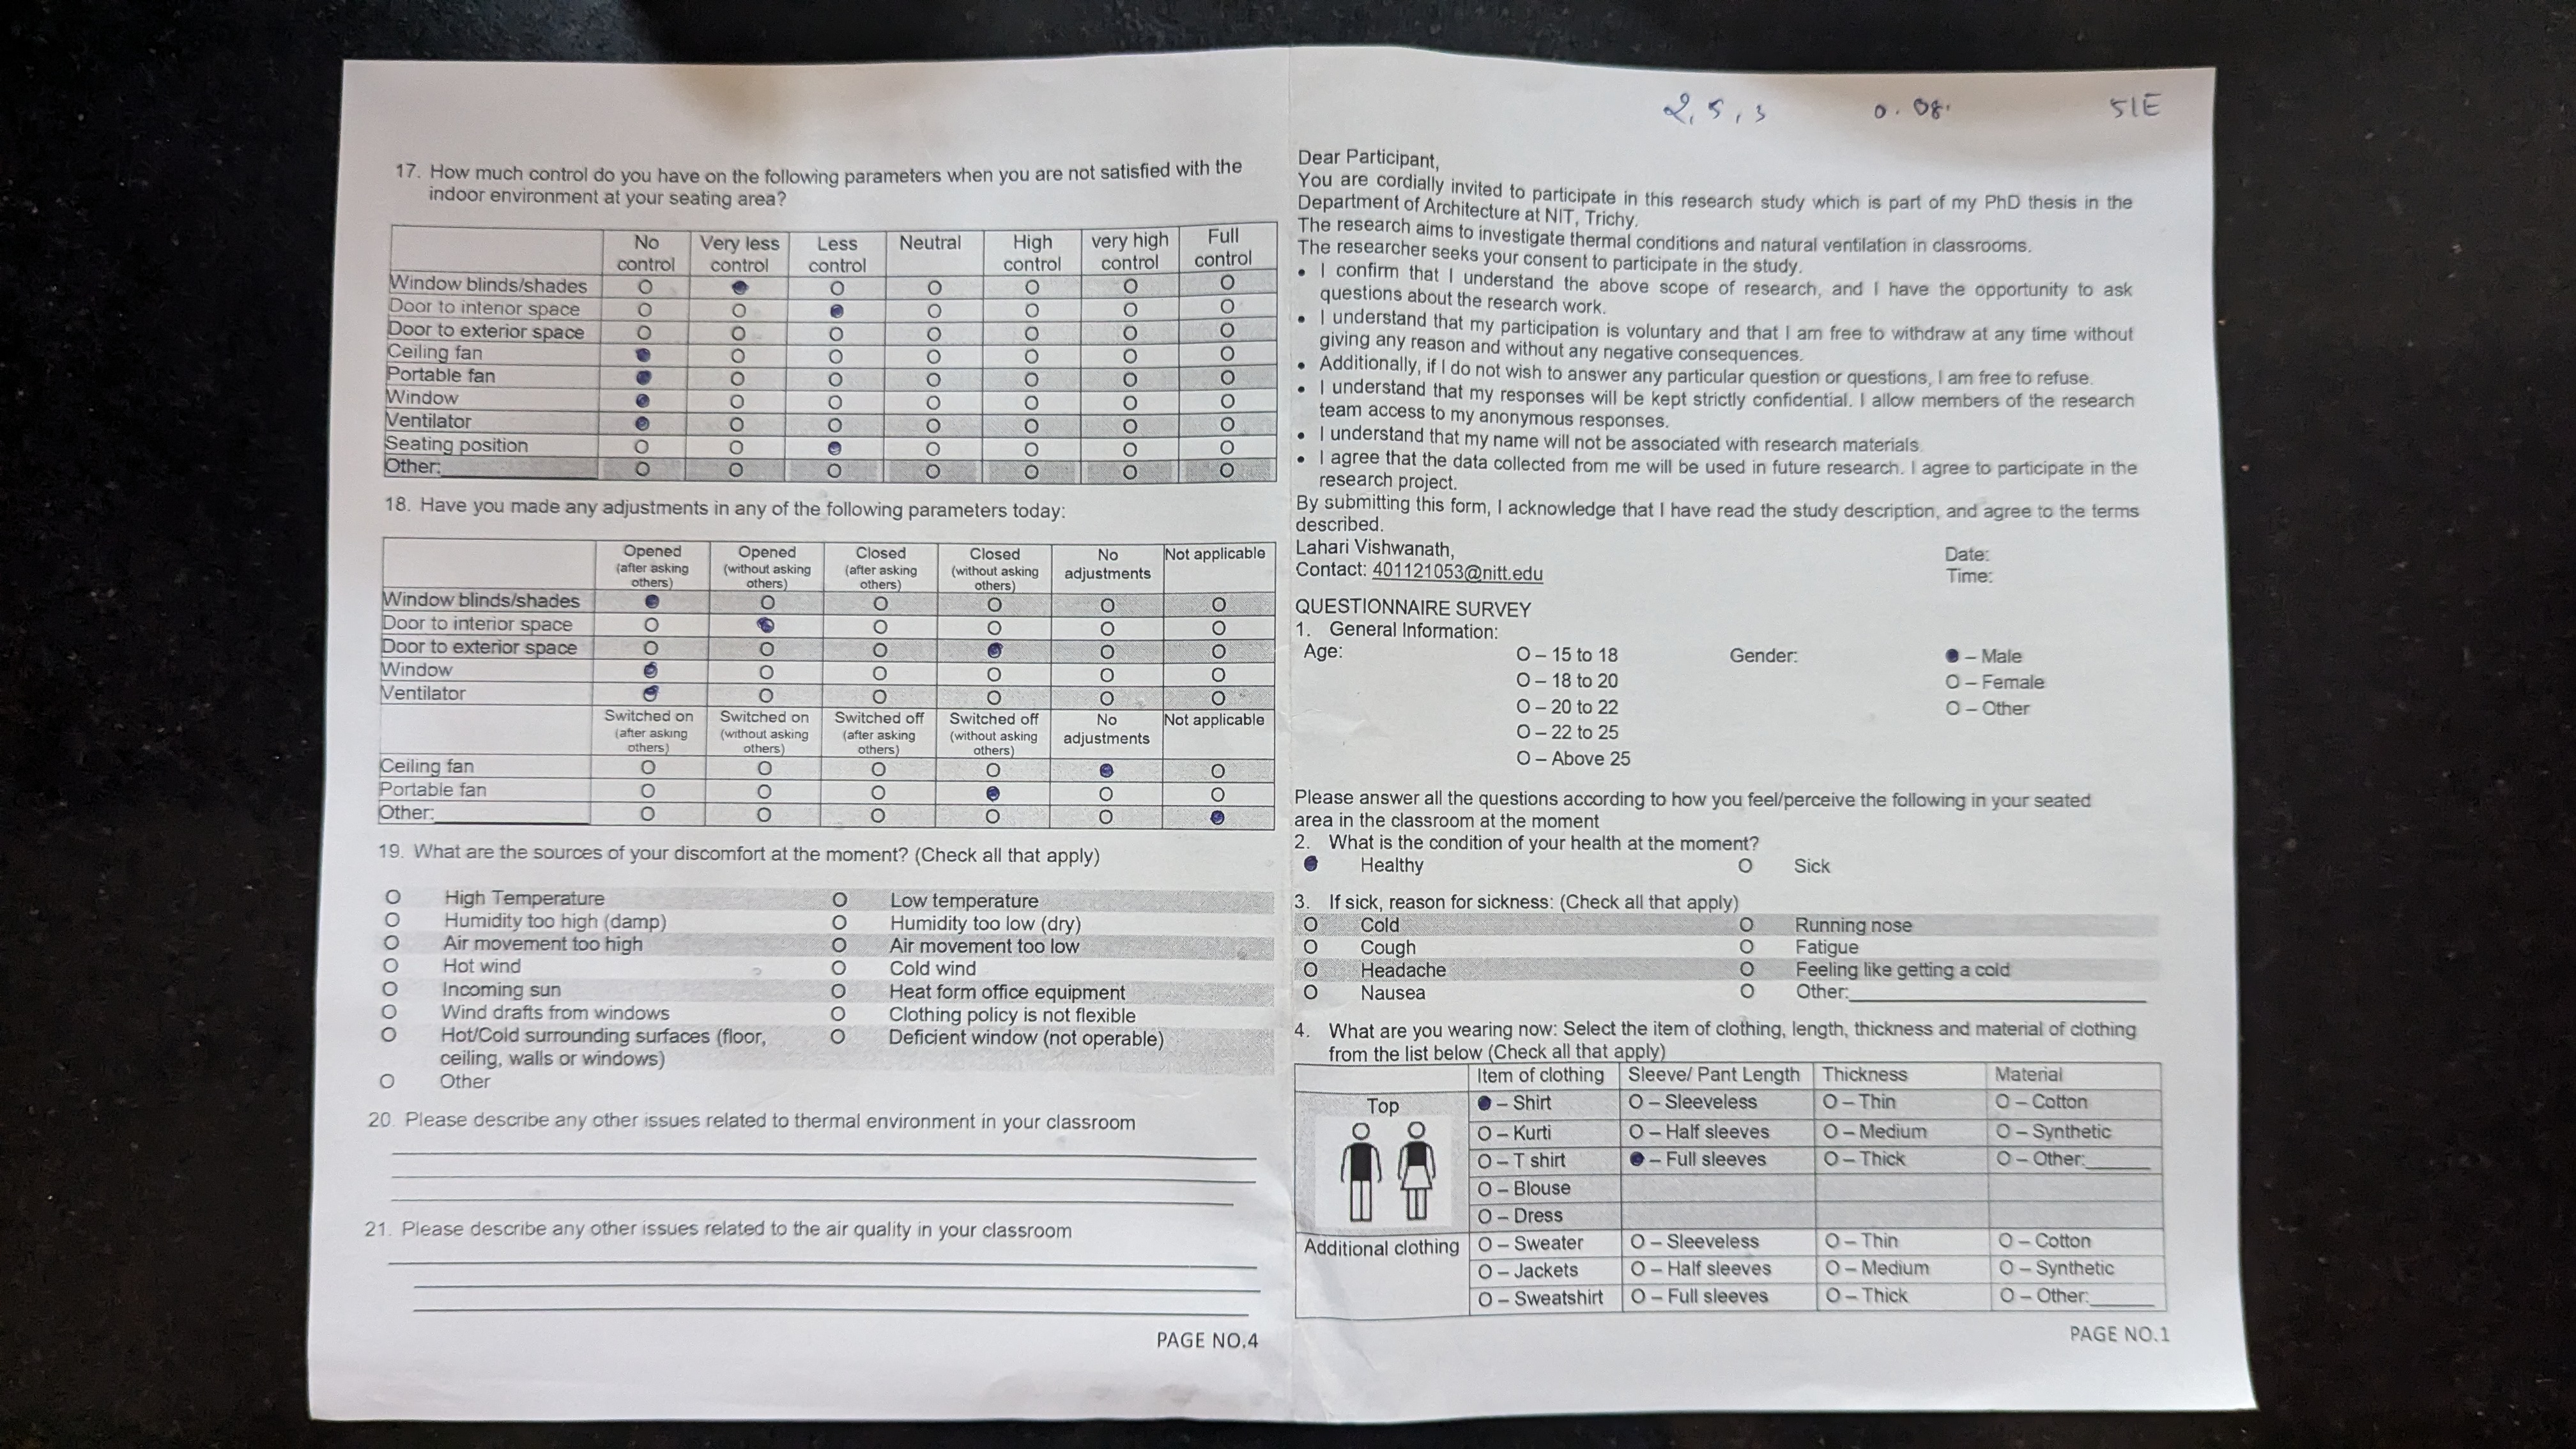 17. How much control do you have on the following parameters when you are not satisfied with the
indoor environment at your seating area?
No control Very less control Less control Neutral High control very high control Full control
Window blinds/shades O ● O O O O O
Door to interior space O O ● O O O O
Door to exterior space O O O O O O O
Ceiling fan ● O O O O O O
Portable fan ● O O O O O O
Window ● O O O O O O
Ventilator ● O O O O O O
Seating position O O ● O O O O
Other:________ O O O O O O O
18. Have you made any adjustments in any of the following parameters today:
Opened (after asking others) Opened (without asking others) Closed (after asking others) Closed (without asking others) No adjustments Not applicable
Window blinds/shades ● O O O O O
Door to interior space O ● O O O O
Door to exterior space O O O ● O O
Window ● O O O O O
Ventilator ● O O O O O
Switched on (after asking others) Switched on (without asking others) Switched off (after asking others) Switched off (without asking others) No adjustments Not applicable
Ceiling fan O O O O ● O
Portable fan O O O ● O O
Other:________ O O O O O ●
19. What are the sources of your discomfort at the moment? (Check all that apply)
O High Temperature O Low temperature
O Humidity too high (damp) O Humidity too low (dry)
O Air movement too high O Air movement too low
O Hot wind O Cold wind
O Incoming sun O Heat form office equipment
O Wind drafts from windows O Clothing policy is not flexible
O Hot/Cold surrounding surfaces (floor, O Deficient window (not operable)
ceiling, walls or windows)
O Other
20. Please describe any other issues related to thermal environment in your classroom
21. Please describe any other issues related to the air quality in your classroom
PAGE NO.4
2, 5, 3 0.08. 51E
Dear Participant,
You are cordially invited to participate in this research study which is part of my PhD thesis in the
Department of Architecture at NIT, Trichy.
The research aims to investigate thermal conditions and natural ventilation in classrooms.
The researcher seeks your consent to participate in the study.
• I confirm that I understand the above scope of research, and I have the opportunity to ask
questions about the research work.
• I understand that my participation is voluntary and that I am free to withdraw at any time without
giving any reason and without any negative consequences.
• Additionally, if I do not wish to answer any particular question or questions, I am free to refuse.
• I understand that my responses will be kept strictly confidential. I allow members of the research
team access to my anonymous responses.
• I understand that my name will not be associated with research materials.
• I agree that the data collected from me will be used in future research. I agree to participate in the
research project.
By submitting this form, I acknowledge that I have read the study description, and agree to the terms
described.
Lahari Vishwanath, Date:
Contact: 401121053@nitt.edu Time:
QUESTIONNAIRE SURVEY
1. General Information:
Age: O – 15 to 18 Gender: ● – Male
O – 18 to 20 O – Female
O – 20 to 22 O – Other
O – 22 to 25
O – Above 25
Please answer all the questions according to how you feel/perceive the following in your seated
area in the classroom at the moment
2. What is the condition of your health at the moment?
● Healthy O Sick
3. If sick, reason for sickness: (Check all that apply)
O Cold O Running nose
O Cough O Fatigue
O Headache O Feeling like getting a cold
O Nausea O Other:________
4. What are you wearing now: Select the item of clothing, length, thickness and material of clothing
from the list below (Check all that apply)
Item of clothing Sleeve/ Pant Length Thickness Material
Top ● – Shirt O – Sleeveless O – Thin O – Cotton
O – Kurti O – Half sleeves O – Medium O – Synthetic
O – T shirt ● – Full sleeves O – Thick O – Other:______
O – Blouse
O – Dress
Additional clothing O – Sweater O – Sleeveless O – Thin O – Cotton
O – Jackets O – Half sleeves O – Medium O – Synthetic
O – Sweatshirt O – Full sleeves O – Thick O – Other:______
PAGE NO.1